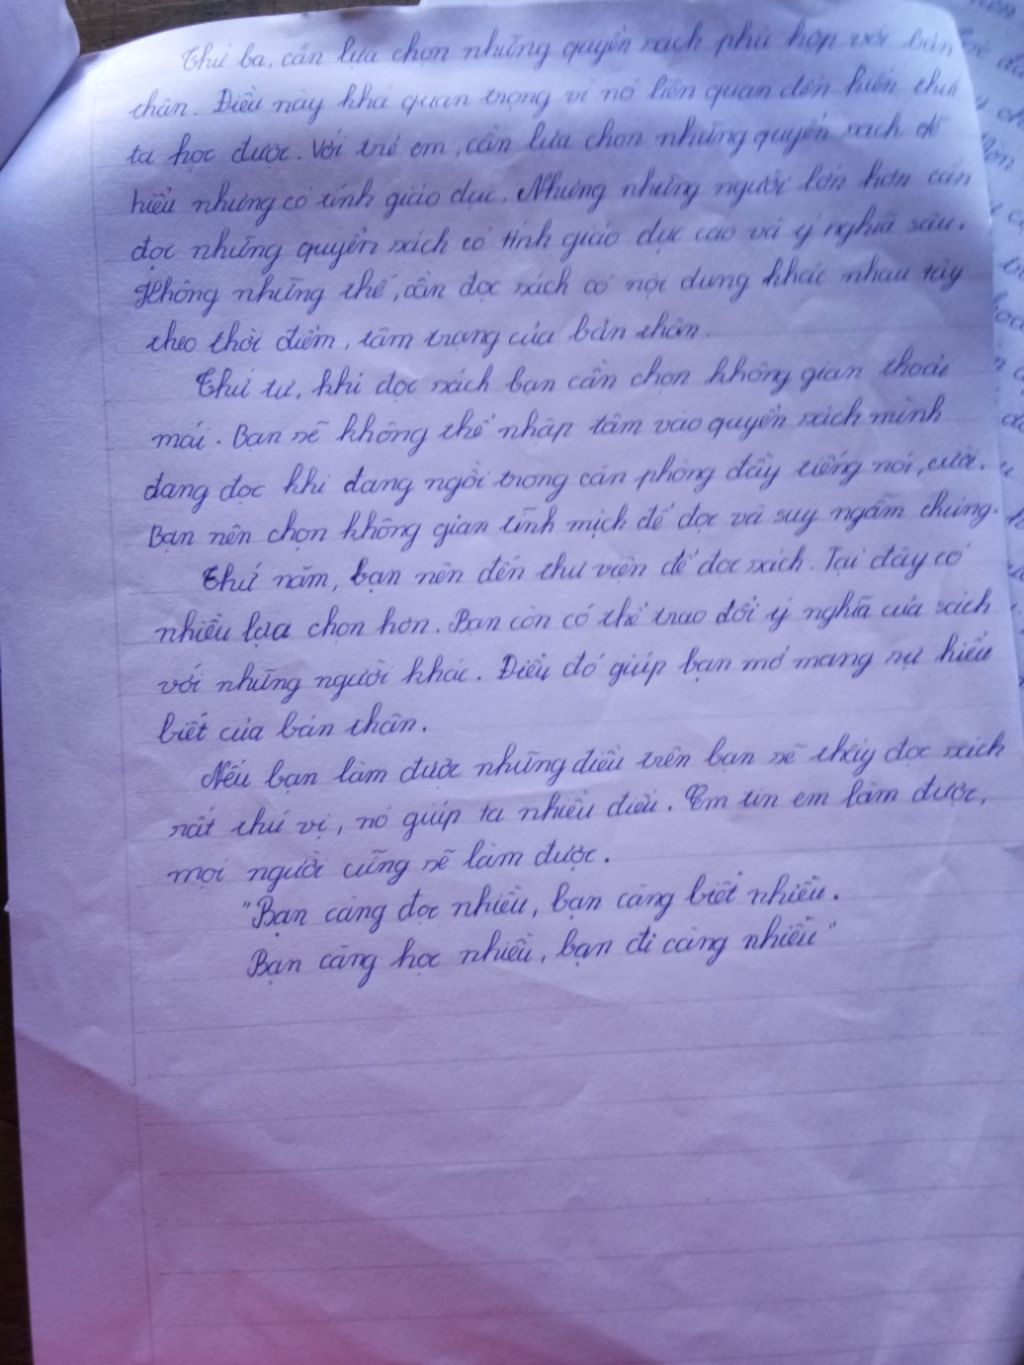 Thứ ba, cần lựa chọn những quyển sách phù hợp với bản
thân. Điều này khá quan trọng vì nó liên quan đến kiến thức
ta học được. Với trẻ em, cần lựa chọn những quyển sách dễ
hiểu nhưng có tính giáo dục. Nhưng những người lớn hơn cần
đọc những quyển sách có tính giáo dục cao và ý nghĩa sâu.
Không những thế, cần đọc sách có nội dung khác nhau tùy
theo thời điểm, tâm trạng của bản thân.
Thứ tư, khi đọc sách bạn cần chọn không gian thoải
mái. Bạn sẽ không thể nhập tâm vào quyển sách mình
đang đọc khi đang ngồi trong căn phòng đầy tiếng nói, cười.
Bạn nên chọn không gian tĩnh mịch để đọc và suy ngẫm chúng.
Thứ năm, bạn nên đến thư viện để đọc sách. Tại đây có
nhiều lựa chọn hơn. Bạn còn có thể trao đổi ý nghĩa của sách
với những người khác. Điều đó giúp bạn mở mang sự hiểu
biết của bản thân.
Nếu bạn làm được những điều trên bạn sẽ thấy đọc sách
rất thú vị, nó giúp ta nhiều điều. Em tin em làm được,
mọi người cũng sẽ làm được.
"Bạn càng đọc nhiều, bạn càng biết nhiều.
Bạn càng học nhiều, bạn đi càng nhiều"